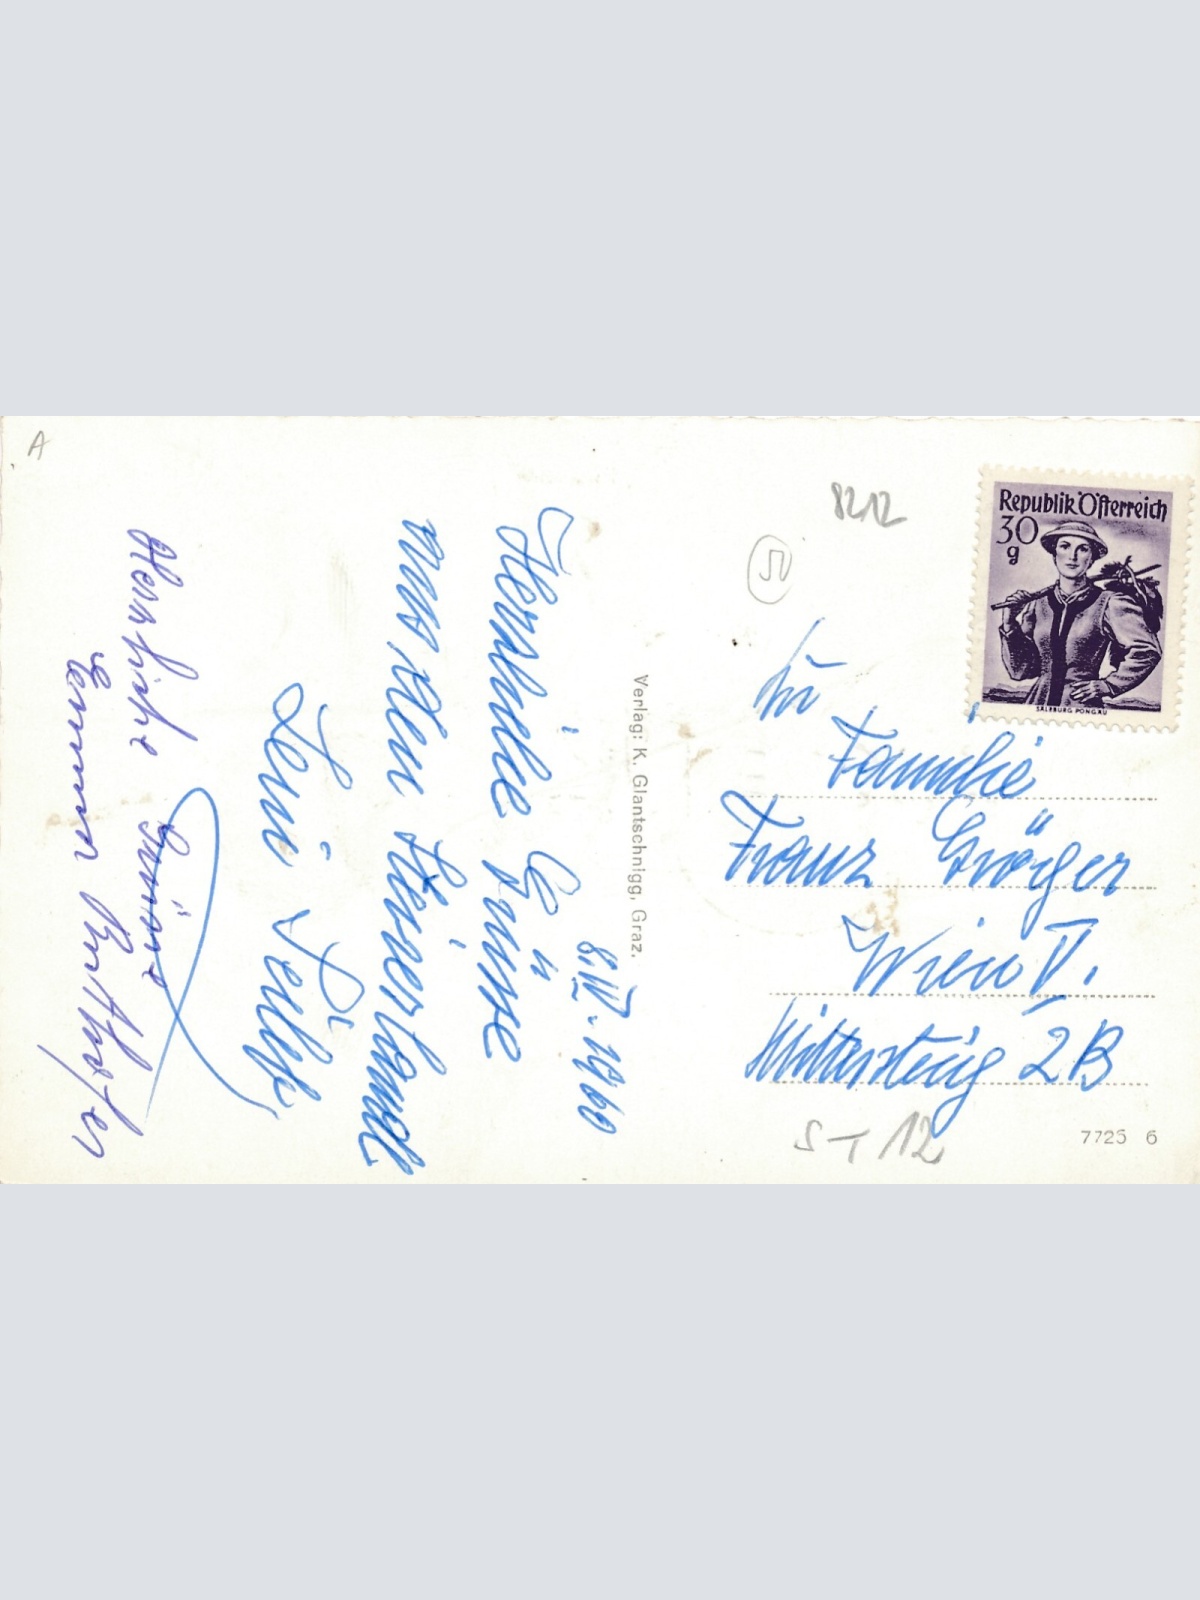 A
8.IV.1960
Herzliche Grüsse
aus dem
Leni
Herzliche Grüsse
Verlag: K. Glantschnigg, Graz.
8212
5
Republik Österreich
30
g
SALZBURG PONGAU
An
Familie
Franz Gröger
Wien V.
Mittersteig 2B
ST 12
7725 6